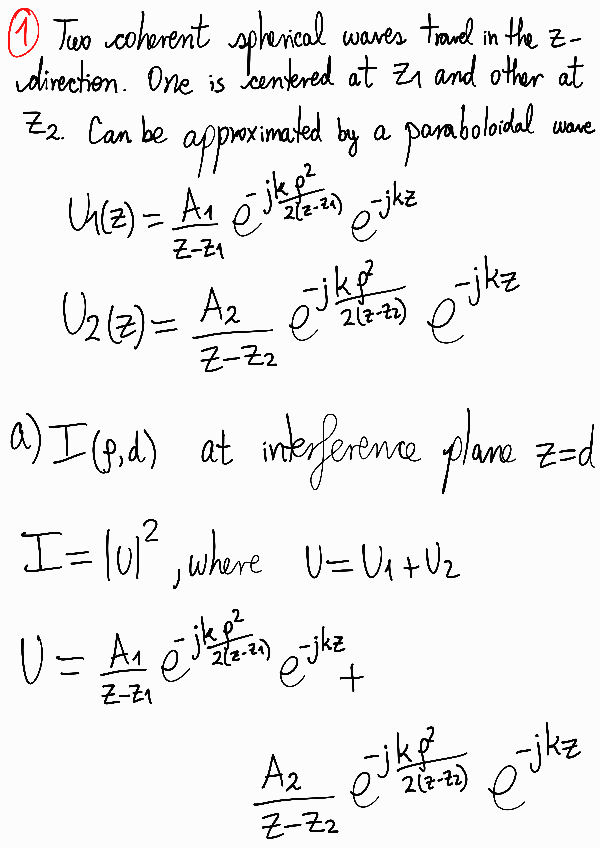 ① Two coherent spherical waves travel in the z-
direction. One is centered at z1 and other at
z2. Can be approximated by a paraboloidal wave
U1(z) = A1/(z-z1) e^(-jk ρ²/(2(z-z1))) e^(-jkz)
U2(z) = A2/(z-z2) e^(-jk ρ²/(2(z-z2))) e^(-jkz)
a) I(ρ,d) at interference plane z=d
I = |U|², where U = U1 + U2
U = A1/(z-z1) e^(-jk ρ²/(2(z-z1))) e^(-jkz) +
A2/(z-z2) e^(-jk ρ²/(2(z-z2))) e^(-jkz)